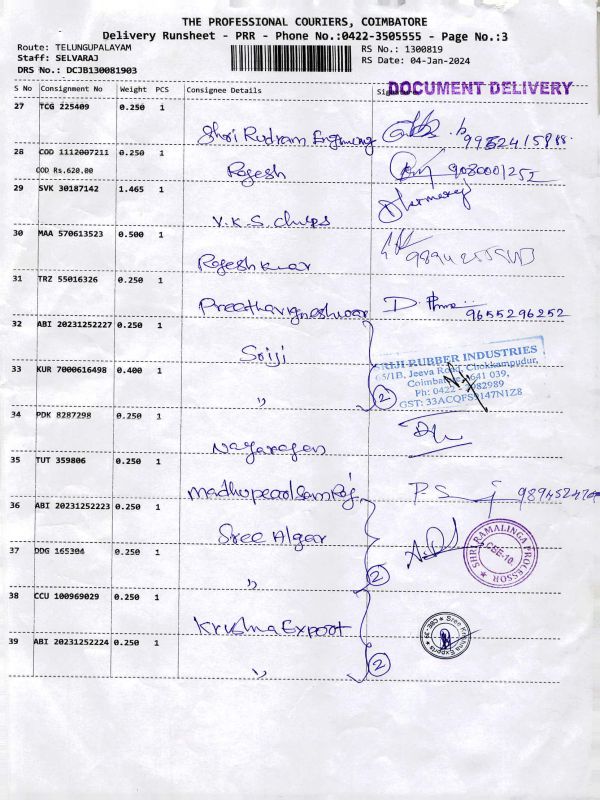 THE PROFESSIONAL COURIERS, COIMBATORE
Delivery Runsheet - PRR - Phone No.:0422-3505555 - Page No.:3
Route: TELUNGUPALAYAM
Staff: SELVARAJ
DRS No.: DCJB130081903
RS No.: 1300819
RS Date: 04-Jan-2024
S No Consignment No Weight PCS Consignee Details
DOCUMENT DELIVERY
27 TCG 225409 0.250 1
Shri Rudram
28 COD 1112007211 0.250 1
COD Rs.620.00
Rajesh 9080001252
29 SVK 30187142 1.465 1
V.K.S. chips
30 MAA 570613523 0.500 1
Rajesh kumar
31 TRZ 55016326 0.250 1
Preethavigneshwar 9655296252
32 ABI 20231252227 0.250 1
Sriji
RIJI RUBBER INDUSTRIES
65/1B, Jeeva Road, Chokkampudur,
Coimbatore 641 039,
33 KUR 7000616498 0.400 1
" 2
34 PDK 8287298 0.250 1
Nagarajan
35 TUT 359806 0.250 1
36 ABI 20231252223 0.250 1
Sree Algar
SHRI RAMALINGA PROFESSOR
CBE-10
37 DDG 165304 0.250 1
" 2
38 CCU 100969029 0.250 1
Krishna Export
Sree Krishna Exports
39 ABI 20231252224 0.250 1
" 2